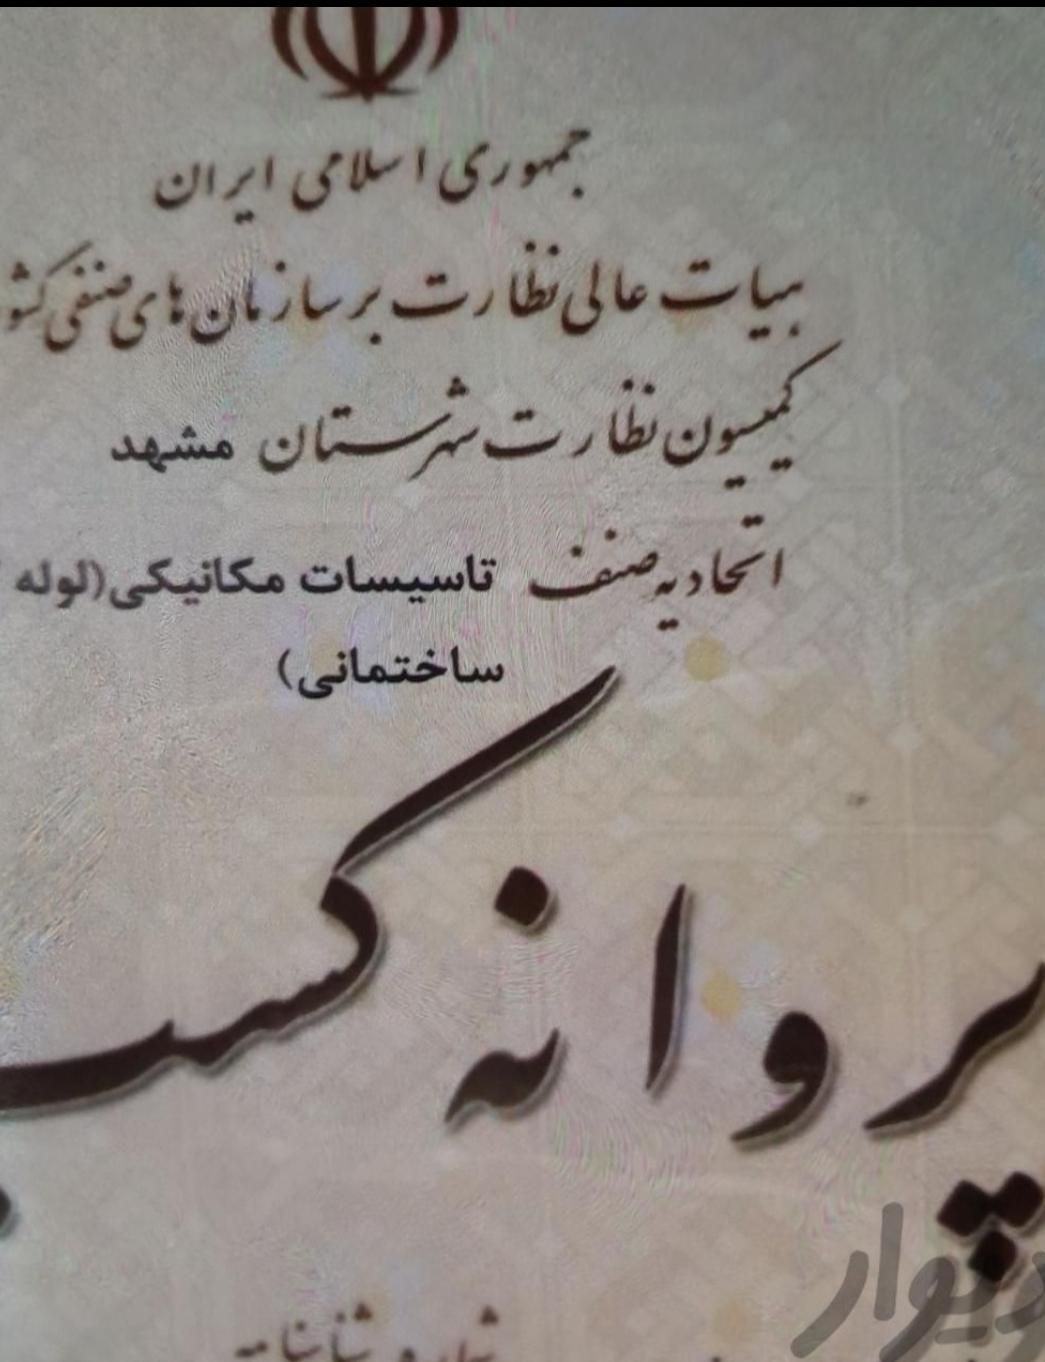 جمهوری اسلامی ایران
هیات عالی نظارت بر سازمان های صنفی کشور
کمیسیون نظارت شهرستان مشهد
اتحادیه صنف تاسیسات مکانیکی(لوله
ساختمانی)
پروانه کسب
شماره شناسه
دیوار